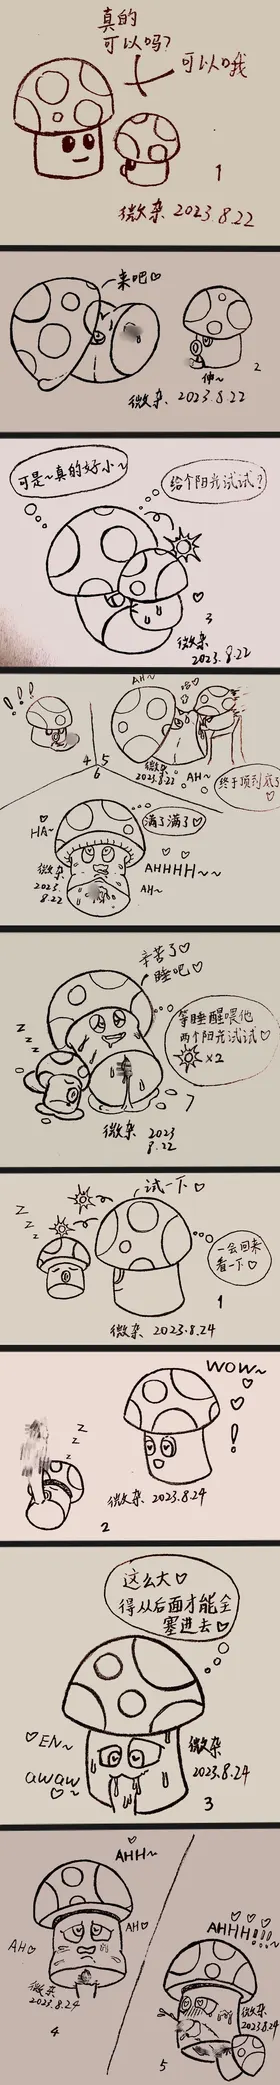 真的
可以吗?
可以哦
1
微杂 2023.8.22
来吧♡
伸~
2
微杂 2023.8.22
可是~真的好小~
给个阳光试试?
♡
3
微杂
2023.8.22
!!!
AH~
哈♡
4 5
6
微杂
2023.8.22
AH~
终于顶到底了
♡
♡
HA~
满了满了♡
微杂
2023.
8.22
AHHHH~~
AH~
辛苦了♡
睡吧♡
z z z
等睡醒喂他
两个阳光试试♡
×2
7
微杂 2023
8.22
试一下♡
z z z
一会回来
看一下♡
1
微杂 2023.8.24
WOW~
♡ ♡ ♡ !
z z z
微杂 2023.8.24
2
这么大♡
得从后面才能全
塞进去♡
♡EN~
awaw
♡~
微杂
2023.8.24
3
♡
AHH~
AH♡
AH♡
微杂
2023.8.24
4
♡ ♡ ♡
AHHH!!!~
微杂
2023.8.24
5